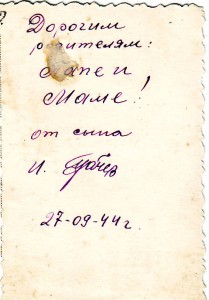 Дорогим
родителям:
Папе и
Маме!
от сына
И.
27-09-44г.